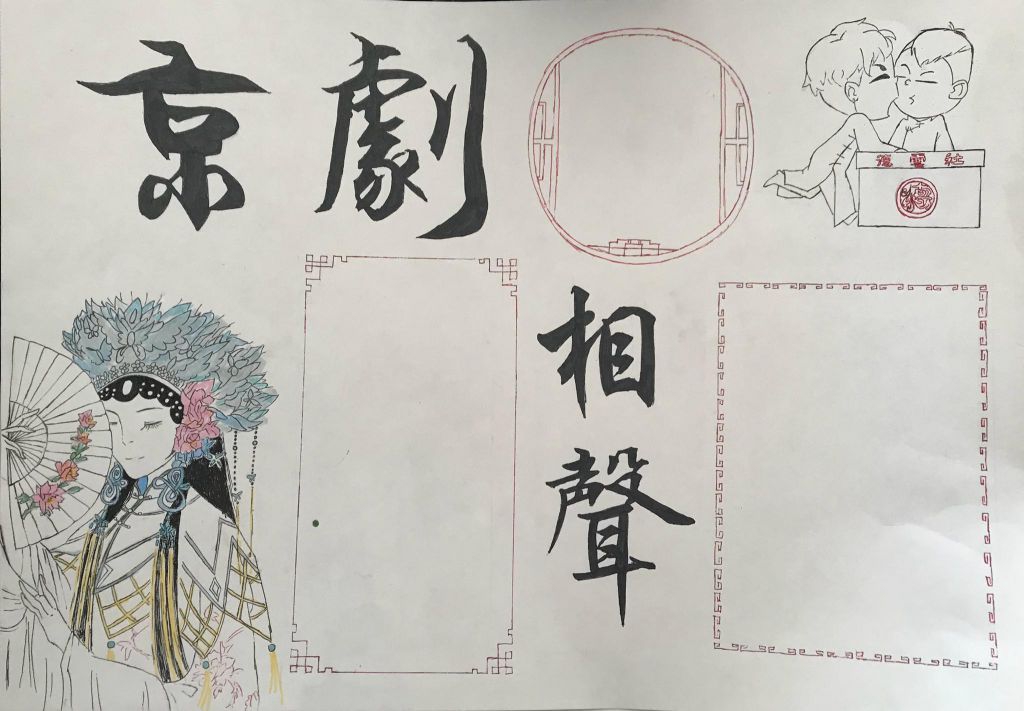 京劇
德雲社
相聲